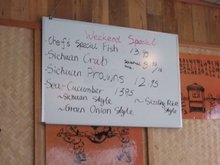 Weekend Special
Chef's Special Fish 13
Sichuan Crab
Sichuan Prawns 12.95
Sea-Cucumber 13.95
~Sichuan Style ~Sizzling Rice Style
~Green Onion Style